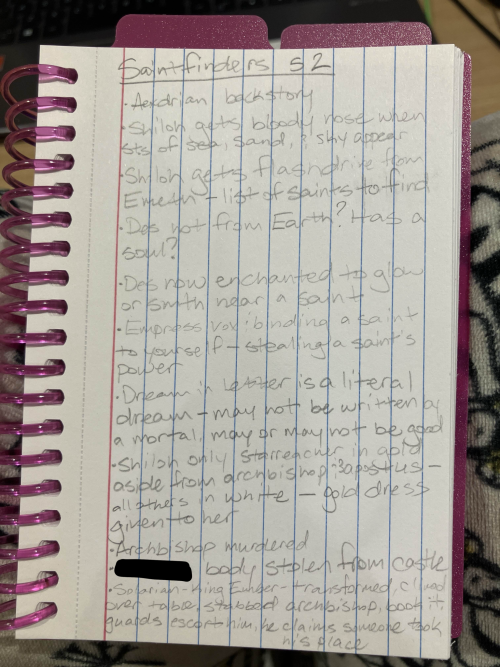 Saintfinders S2
• Aerdrian backstory
• Shiloh gets bloody nose when
sts of sea, sand, & sky appear
• Shiloh gets flashdrive from
Emeth – list of saints to find
• Des not from Earth? Has a
soul?
• Des now enchanted to glow
or smth near a saint
• Empress vox: binding a saint
to yourself – stealing a saint's
power
• Dream in letter is a literal
dream – may not be written by
a mortal, may or may not be good
• Shiloh only starreacher in gold
aside from archbishop –
all others in white – gold dress
given to her
• Archbishop murdered
• body stolen from castle
• Solarian – King Ember – transformed, climbed
over table, stabbed archbishop, book it,
guards escort him, he claims someone took
his place